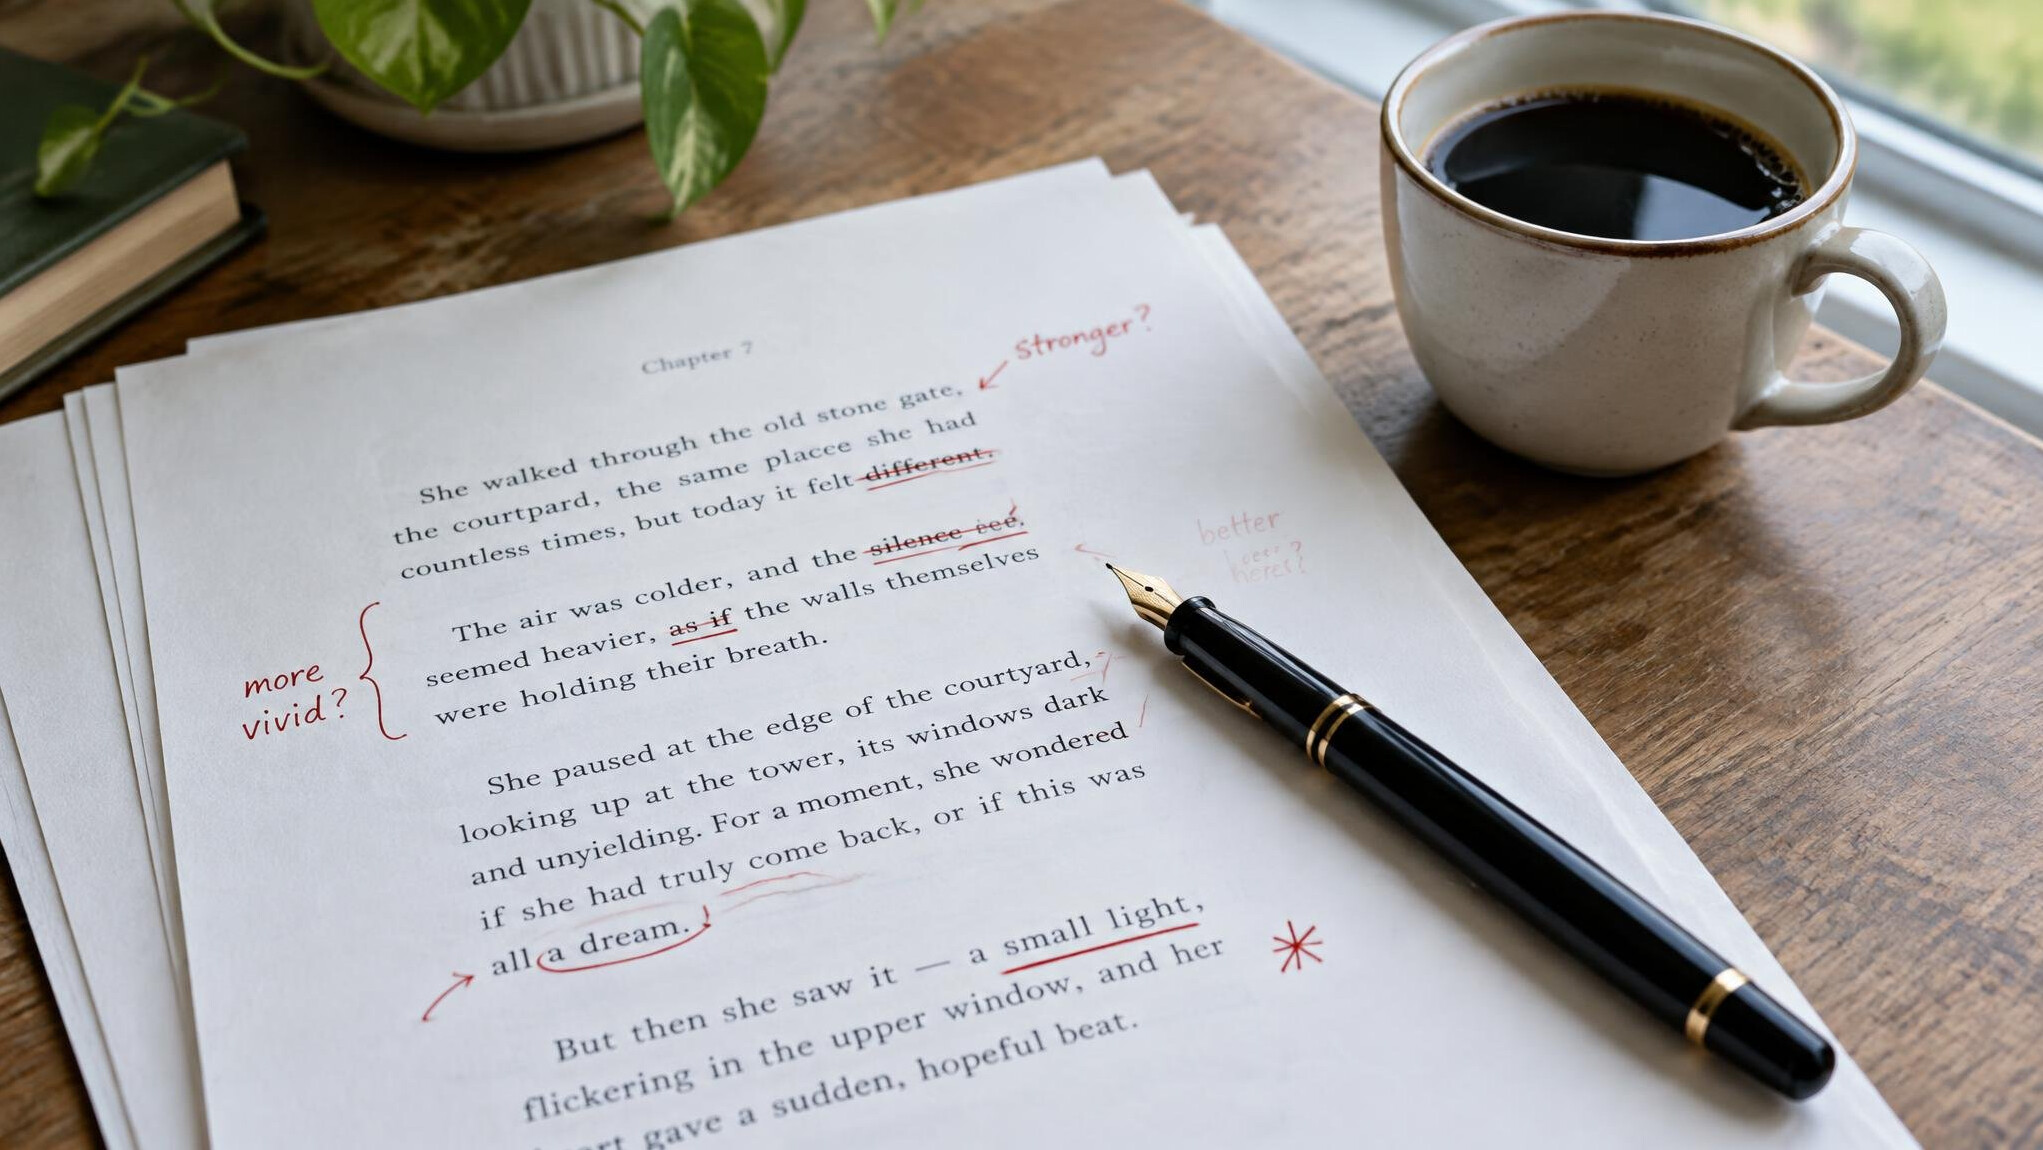 Chapter 7
Stronger?
She walked through the old stone gate,
the courtpard, the same placee she had
countless times, but today it felt different.
The air was colder, and the silence
seemed heavier, as if the walls themselves
were holding their breath.
more
vivid?
better
She paused at the edge of the courtyard,
looking up at the tower, its windows dark
and unyielding. For a moment, she wondered
if she had truly come back, or if this was
all a dream.
But then she saw it — a small light,
flickering in the upper window, and her
gave a sudden, hopeful beat.